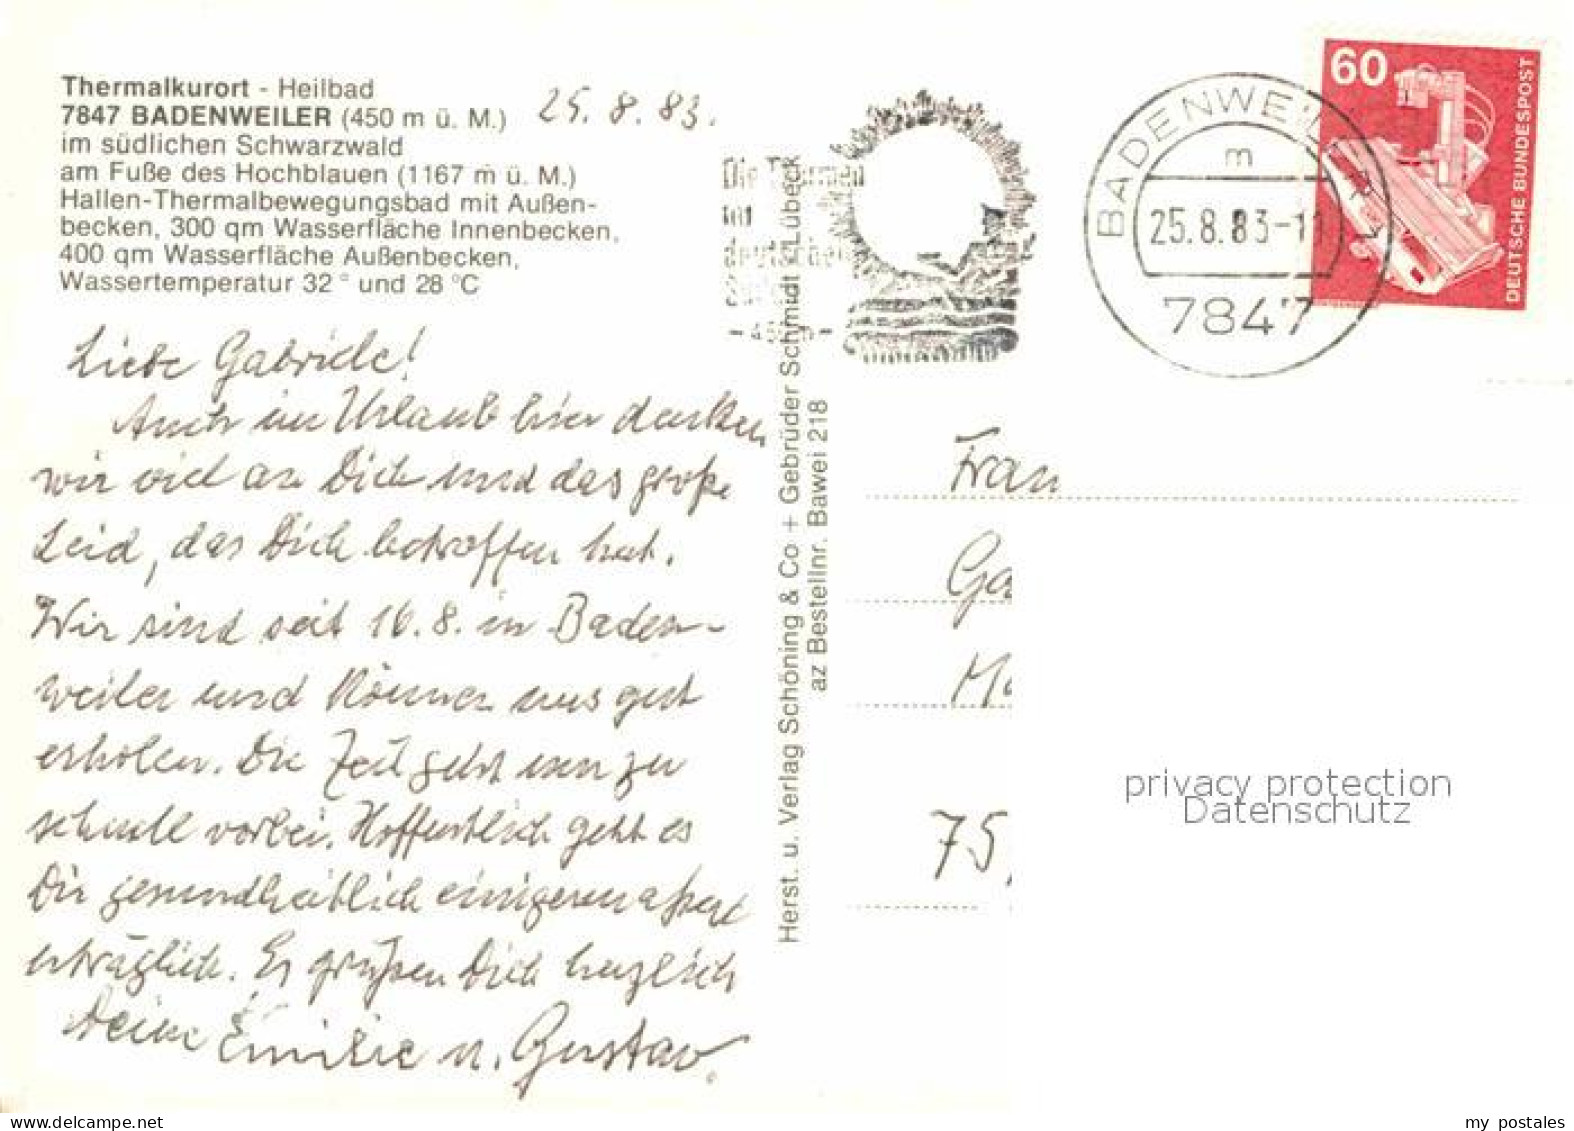 Thermalkurort - Heilbad
7847 BADENWEILER (450 m ü. M.)
im südlichen Schwarzwald
am Fuße des Hochblauen (1167 m ü. M.)
Hallen-Thermalbewegungsbad mit Außen-
becken, 300 qm Wasserfläche Innenbecken,
400 qm Wasserfläche Außenbecken,
Wassertemperatur 32 ° und 28 °C
25. 8. 83.
Liebe Gabriele!
Auch im Urlaub hier denken
wir viel an Dich und das große
Leid, das Dich betroffen hat.
Wir sind seit 16.8. in Baden-
weiler und können uns gut
erholen. Die Zeit geht nur zu
schnell vorbei. Hoffentlich geht es
Dir gesundheitlich einigermaßen
erträglich. Es grüßen Dich herzlich
Deine Emilie u. Gustav.
Herst. u. Verlag Schöning & Co + Gebrüder Schmidt · Lübeck
az Bestellnr. Bawei 218
Die Thermen
im
deutschen
Süden
- 450 m -
BADENWEILER 1
m
25.8.83-11
7847
60
DEUTSCHE BUNDESPOST
Frau
Ga
75
privacy protection
Datenschutz
my postales
www.delcampe.net